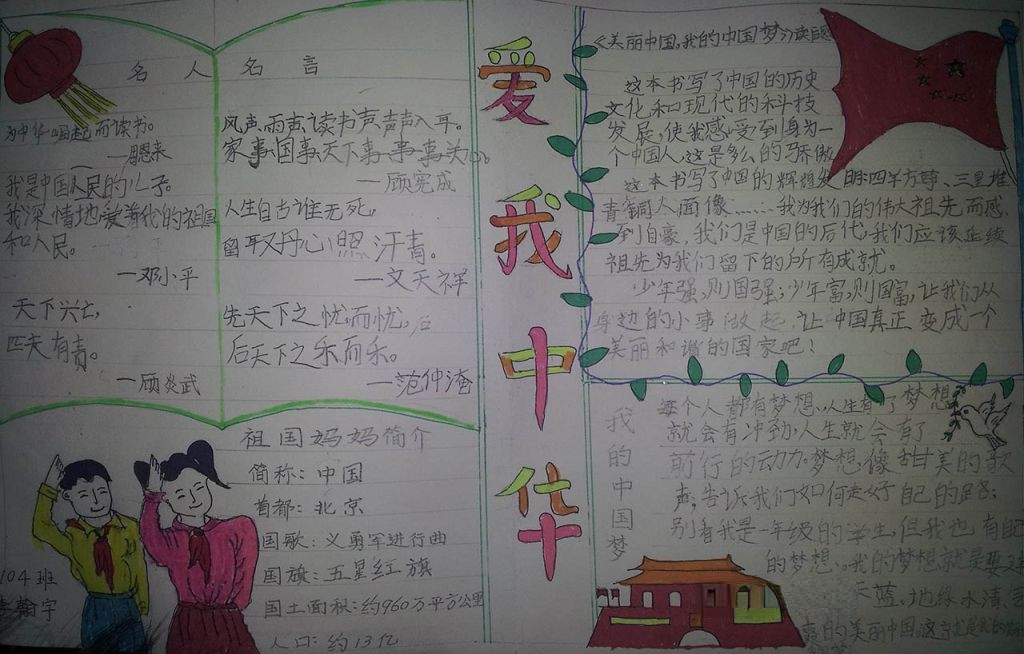 名人名言
为中华崛起而读书。
—周恩来
我是中国人民的儿子。
我深情地爱着我的祖国
和人民。
—邓小平
天下兴亡,
匹夫有责。
—顾炎武
风声、雨声、读书声声声入耳。
家事国事天下事事事关心。
—顾宪成
人生自古谁无死,
留取丹心照汗青。
—文天祥
先天下之忧而忧,后
后天下之乐而乐。
—范仲淹
祖国妈妈简介
简称:中国
首都:北京
国歌:义勇军进行曲
国旗:五星红旗
国土面积:约960万平方公里
人口:约13亿
104班
翰宇
爱我中华
《美丽中国,我的中国梦》读后感
这本书写了中国的历史
文化和现代的科技
发展,使我感受到身为一
个中国人,这是多么的骄傲
这本书写了中国的辉煌发明:四羊方尊、三星堆
青铜人面像……我为我们的伟大祖先而感
到自豪,我们是中国的后代,我们应该延续
祖先为我们留下的所有成就。
少年强,则国强;少年富,则国富,让我们从
身边的小事做起,让中国真正变成一个
美丽和谐的国家吧!
我的中国梦
每个人都有梦想,人生有了梦想
就会有冲劲,人生就会有了
前行的动力。梦想像甜美的歌
声,告诉我们如何走好自己的路;
别看我是一年级的学生,但我也有自己
的梦想。我的梦想就是要
天蓝、地绿、水清、
的美丽中国。这就是我的